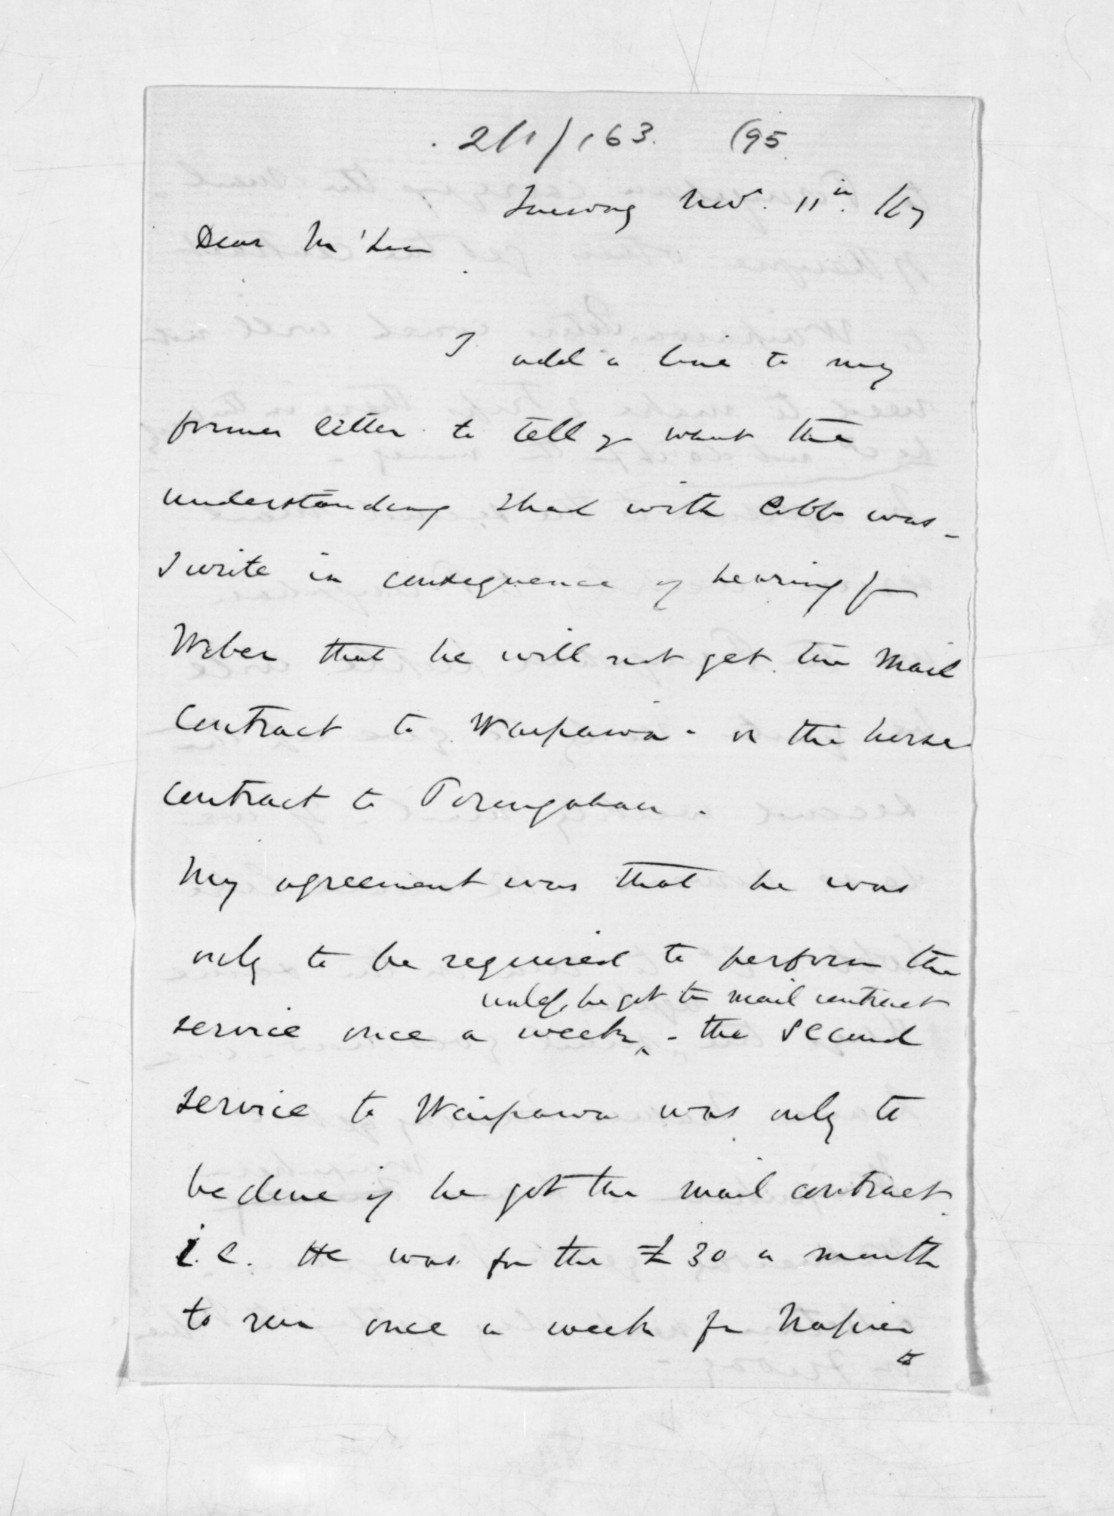 2/1/163. (95.
Nov. 11th. /67
Dear McLean
I add a line to my
former letter to tell yr what the
understanding I had with Cobb was -
I write in consequence of hearing fm
Weber that he will not get the Mail
Contract to Waipawa - or the horse
contract to Porangahau.
My agreement was that he was
only to be required to perform the
unless he got the mail contract
service once a week ^ - the second
service to Waipawa was only to
be done if he got the mail contract.
i.e. He was for the £30 a month
to run once a week fm Napier
to